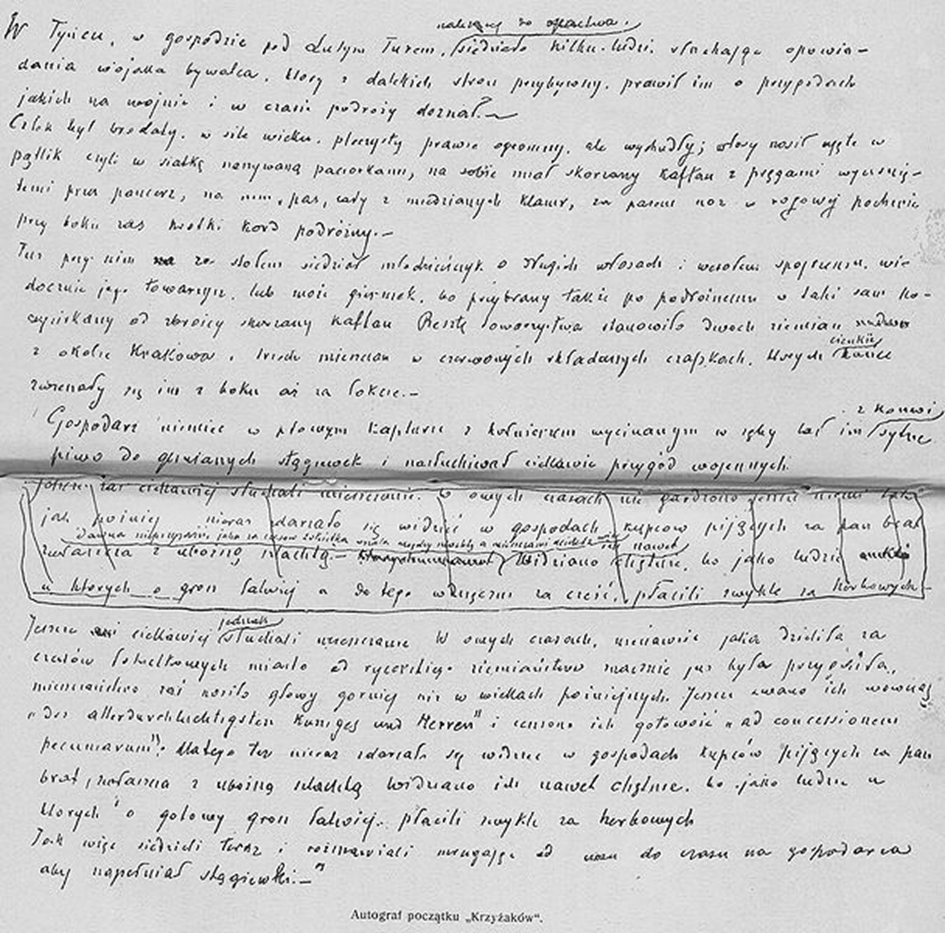 należącej do opactwa.
W Tyńcu, w gospodzie pod Lutym Turem, siedziało kilku ludzi, słuchając opowia-
dania wojaka bywalca, który z dalekich stron przybywszy, prawił im o przygodach
jakich na wojnie i w czasie podróży doznał.—
Człek był brodaty, w sile wieku, pleczysty prawie ogromny, ale wychudły; włosy nosił ujęte w
pątlik czyli w siatkę naszywaną paciorkami, na sobie miał skórzany kaftan z pręgami wyciśnię-
temi przez pancerz, na nim, pas, cały z miedzianych klamr, za pasem nóż w rogowej pochwie
przy boku zaś krótki kord podróżny.—
Tuż przy nim za stołem siedział młodzieńczyk o długich włosach i wesołem spojrzeniu, wi-
docznie jego towarzysz, lub może giermek, bo przybrany także po podróżnemu w taki sam po-
wyciskany od zbroicy skórzany kaftan Resztę towarzystwa stanowiło dwóch ziemian
cienkie
z okolic Krakowa, trzech mieszczan w czerwonych składanych czapkach, których końce
zwieszały się im z boku aż za łokcie.—
z konwi
Gospodarz niemiec w płowym kapturze z kołnierzem wycinanym w zęby lał im sytne
piwo do glinianych stągiewek i nasłuchiwał ciekawie przygód wojennych.
Jeszcze zaś ciekawiej słuchali mieszczanie. W owych czasach nie gardzono jeszcze niemi tak
jak później nieraz zdarzało się widzieć w gospodach kupców pijących za pan brat
dawna nieprzyjaźń jaka za czasów Łokietka między
nawet
zwłaszcza z uboższą szlachtą.— Widziano chętnie, bo jako ludzie
u których o grosz łatwiej a do tego za cześć, płacili zwykle za herbowych—
jednak
Jeszcze ciekawiej słuchali mieszczanie W owych czasach, nienawiść jaka dzieliła za
czasów Łokietkowych miasto od rycerskiego ziemiaństwa znacznie już była przygasła,
mieszczaństwo zaś nosiło głowy górniej niż w wiekach późniejszych. Jeszcze zwano ich wówczas
„des allerdurchluchtigsten Kuniges und Herren" i ceniono ich gotowość „ad concessionem
pecuniarum". Dlatego też nieraz zdarzało się widzieć w gospodach kupców pijących za pan
brat, zwłaszcza z uboższą szlachtą Widziano ich nawet chętnie, bo jako ludzie u
których o gotowy grosz łatwiej, płacili zwykle za herbowych
Tak więc siedzieli teraz i rozmawiali mrugając od czasu do czasu na gospodarza
aby napełniał stągiewki.—"
Autograf początku „Krzyżaków".